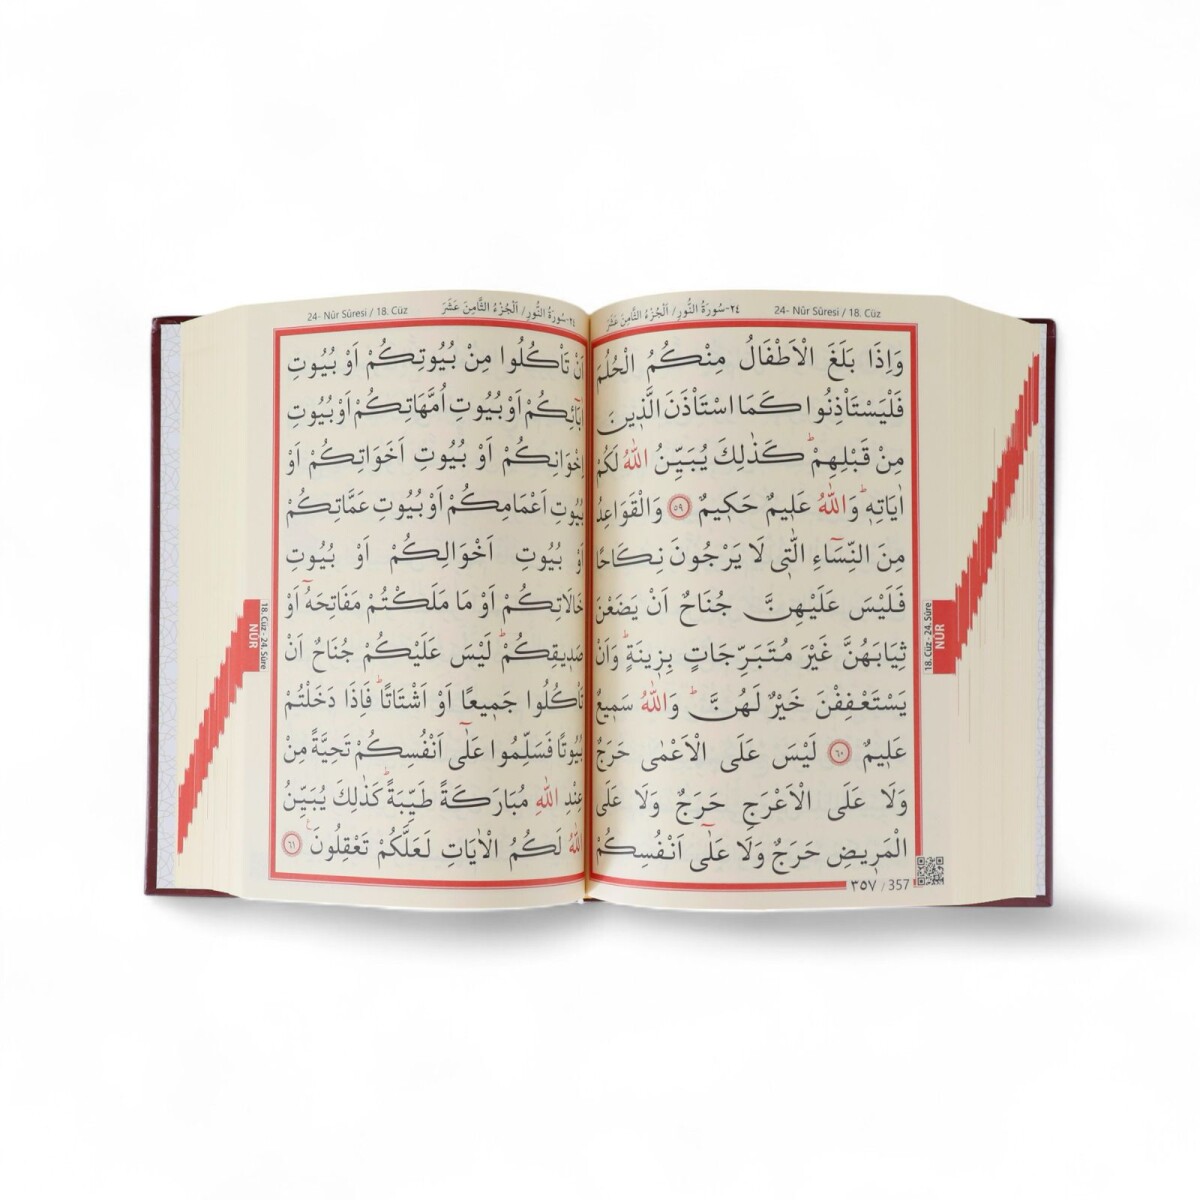 24- Nûr Sûresi / 18. Cüz
٢٤-سُورَةُ النُّورِ/ اَلْجُزْءُ الثَّامِنَ عَشَرَ
وَاِذَا بَلَغَ الْاَطْفَالُ مِنْكُمُ الْحُلُمَ
فَلْيَسْتَأْذِنُوا كَمَا اسْتَأْذَنَ الَّذ۪ينَ
مِنْ قَبْلِهِمْۜ كَذٰلِكَ يُبَيِّنُ اللّٰهُ لَكُمْ
اٰيَاتِه۪ۜ وَاللّٰهُ عَل۪يمٌ حَك۪يمٌ ﴿٥٩﴾ وَالْقَوَاعِدُ
مِنَ النِّسَٓاءِ الّٰت۪ي لَا يَرْجُونَ نِكَاحًا
فَلَيْسَ عَلَيْهِنَّ جُنَاحٌ اَنْ يَضَعْنَ
ثِيَابَهُنَّ غَيْرَ مُتَبَرِّجَاتٍ بِز۪ينَةٍۜ وَاَنْ
يَسْتَعْفِفْنَ خَيْرٌ لَهُنَّۜ وَاللّٰهُ سَم۪يعٌ
عَل۪يمٌ ﴿٦٠﴾ لَيْسَ عَلَى الْاَعْمٰى حَرَجٌ
وَلَا عَلَى الْاَعْرَجِ حَرَجٌ وَلَا عَلَى
الْمَر۪يضِ حَرَجٌ وَلَا عَلٰٓى اَنْفُسِكُمْ
٣٥٧ / 357
18. Cüz - 24. Sûre
NÛR
24- Nûr Sûresi / 18. Cüz
٢٤-سُورَةُ النُّورِ/ اَلْجُزْءُ الثَّامِنَ عَشَرَ
اَنْ تَأْكُلُوا مِنْ بُيُوتِكُمْ اَوْ بُيُوتِ
اٰبَٓائِكُمْ اَوْ بُيُوتِ اُمَّهَاتِكُمْ اَوْ بُيُوتِ
اِخْوَانِكُمْ اَوْ بُيُوتِ اَخَوَاتِكُمْ اَوْ
بُيُوتِ اَعْمَامِكُمْ اَوْ بُيُوتِ عَمَّاتِكُمْ
اَوْ بُيُوتِ اَخْوَالِكُمْ اَوْ بُيُوتِ
خَالَاتِكُمْ اَوْ مَا مَلَكْتُمْ مَفَاتِحَهُٓ اَوْ
صَد۪يقِكُمْۜ لَيْسَ عَلَيْكُمْ جُنَاحٌ اَنْ
تَأْكُلُوا جَم۪يعًا اَوْ اَشْتَاتًاۜ فَاِذَا دَخَلْتُمْ
بُيُوتًا فَسَلِّمُوا عَلٰٓى اَنْفُسِكُمْ تَحِيَّةً مِنْ
عِنْدِ اللّٰهِ مُبَارَكَةً طَيِّبَةًۜ كَذٰلِكَ يُبَيِّنُ
اللّٰهُ لَكُمُ الْاٰيَاتِ لَعَلَّكُمْ تَعْقِلُونَ۟ ﴿٦١﴾
18. Cüz - 24. Sûre
NÛR